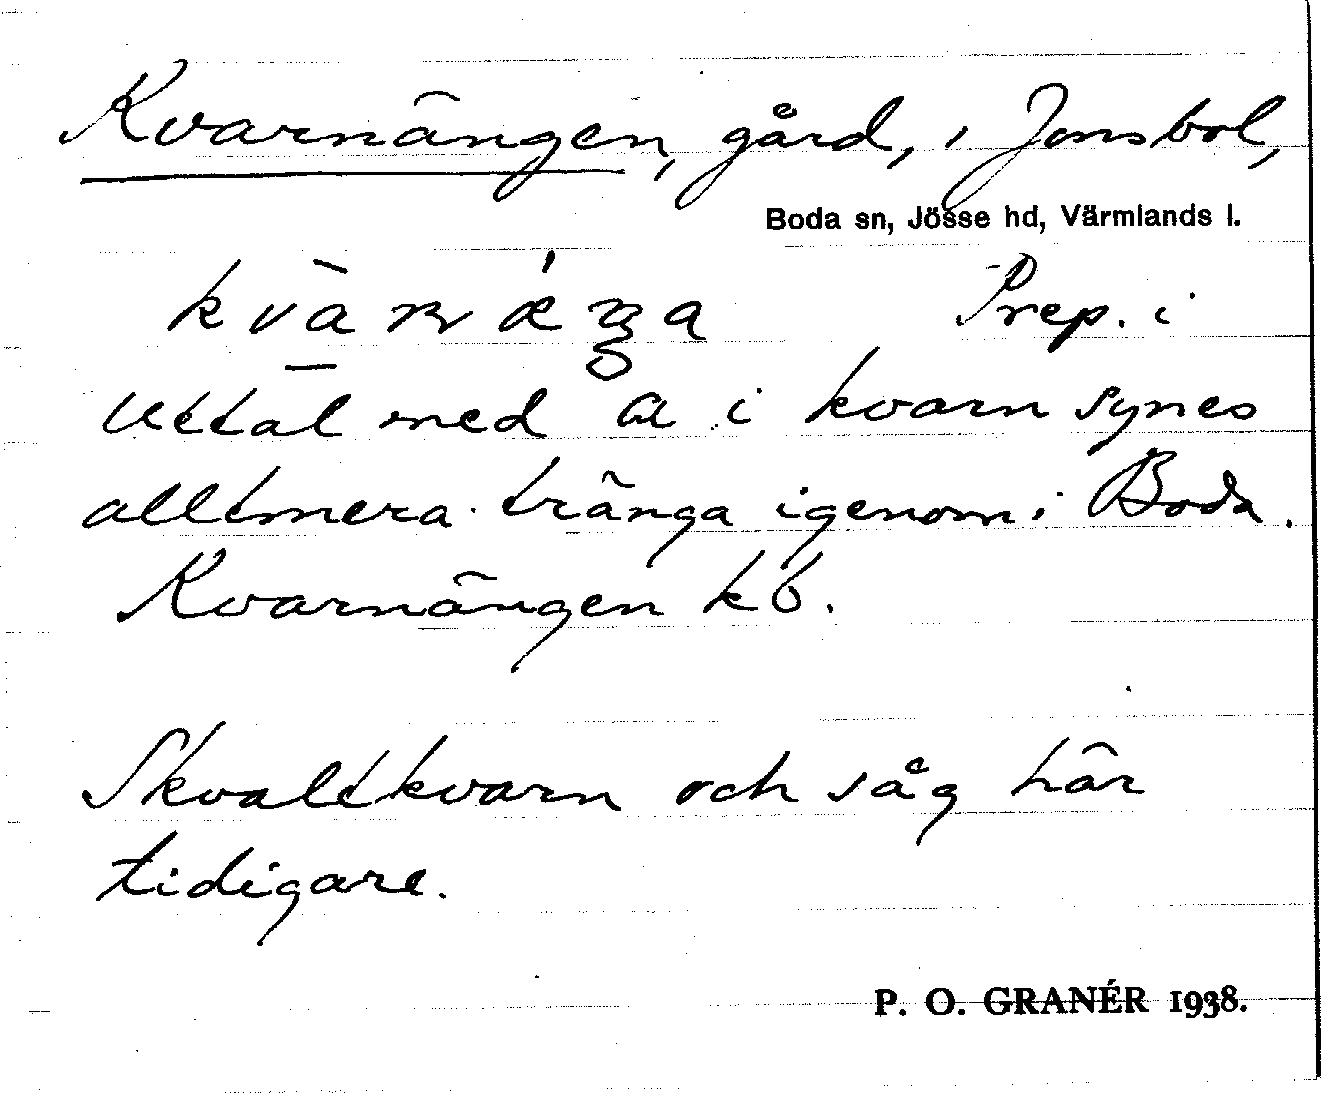 Kvarnängen, gård, i Jonsbol,
Boda sn, Jösse hd, Värmlands l.
Prep. i
Uttal med a i kvarn synes
alltmera tränga igenom i Boda.
Kvarnängen kb.
Skvaltkvarn och såg här
tidigare.
P. O. GRANÉR 1938.